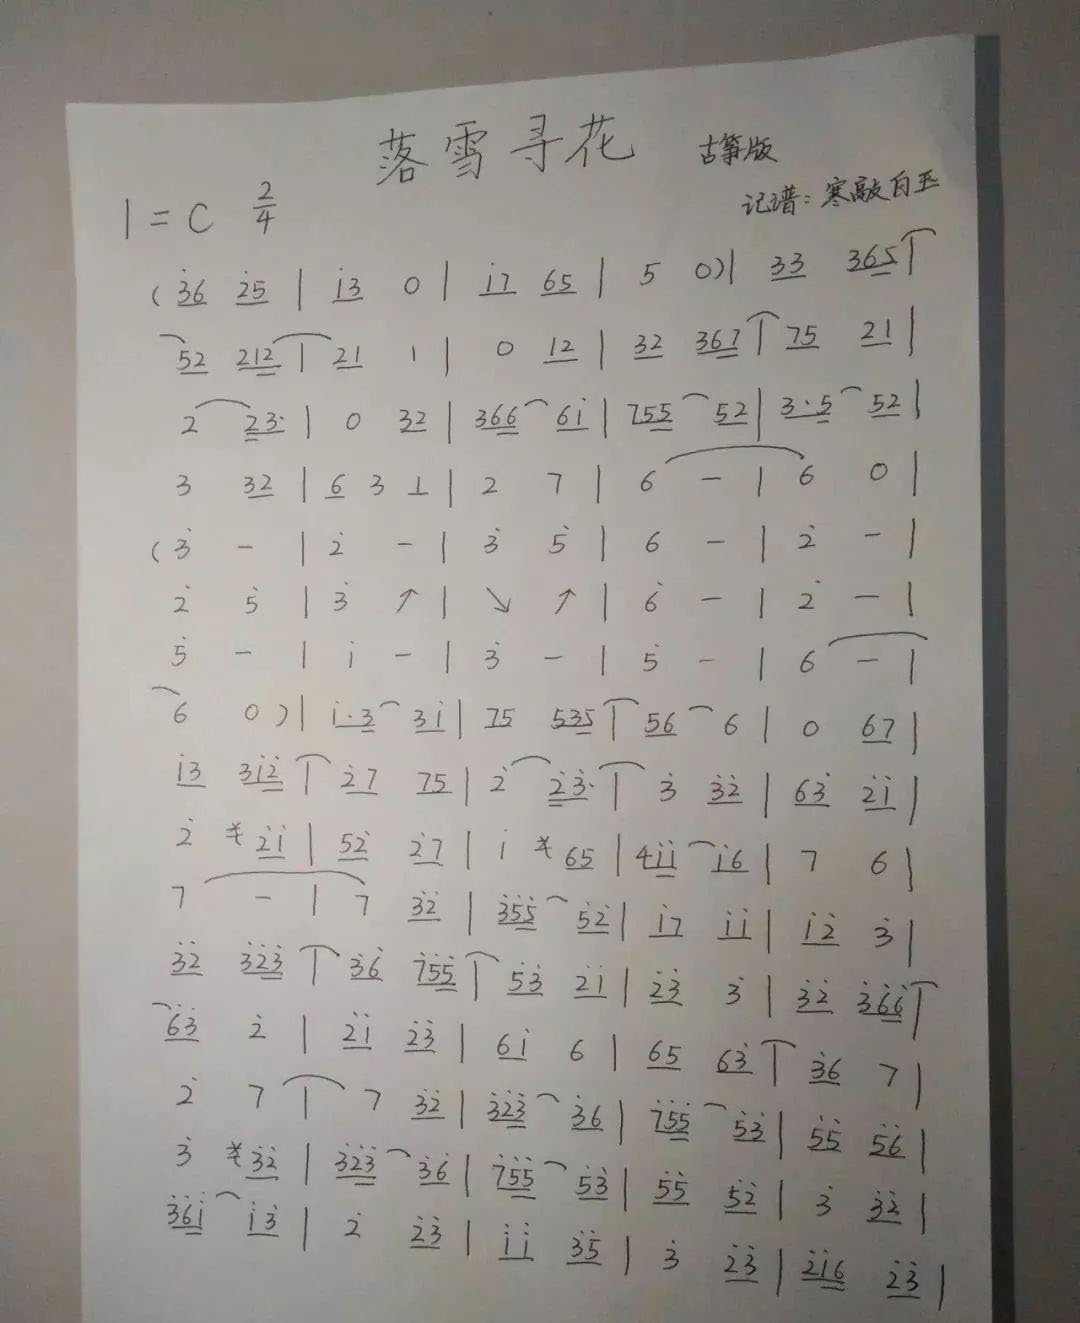 落雪寻花 古筝版
记谱：寒敲白玉
1=C 2/4
(3̇6 2̇5 | i̇3 0 | i̇7 65 | 5 0)| 33 365 |
52 212 | 21 1 | 0 12 | 32 367 | 75 21 |
2 23· | 0 32 | 366 6i̇ | 755 52 | 3·5 52 |
3 32 | 6 3 1 | 2 7 | 6 — | 6 0 |
(3̇ — | 2̇ — | 3̇ 5̇ | 6 — | 2̇ — |
2̇ 5̇ | 3̇ ↗ | ↘ ↗ | 6̇ — | 2̇ — |
5̇ — | i̇ — | 3̇ — | 5̇ — | 6 — |
6 0)| i̇·3 3i̇ | 75 535 | 56 6 | 0 67 |
i̇3 3i̇2̇ | 2̇7 75 | 2̇ 2̇3̇· | 3̇ 3̇2̇ | 63̇ 2̇i̇ |
2̇ 2̇i̇ | 52̇ 2̇7 | i̇ 65 | 4i̇i̇ i̇6 | 7 6 |
7 — | 7 3̇2̇ | 3̇5̇5̇ 5̇2̇ | i̇7 i̇i̇ | i̇2̇ 3̇ |
3̇2̇ 3̇2̇3̇ | 3̇6̇ 7̇5̇5̇ | 5̇3̇ 2̇i̇ | 2̇3̇ 3̇ | 3̇2̇ 3̇6̇6̇ |
6̇3̇ 2̇ | 2̇i̇ 2̇3̇ | 6i̇ 6 | 65 63̇ | 3̇6 7 |
2̇ 7 | 7 3̇2̇ | 3̇2̇3̇ 3̇6 | 7̇5̇5̇ 5̇3̇ | 5̇5̇ 5̇6̇ |
3̇ 3̇2̇ | 3̇2̇3̇ 3̇6̇ | 7̇5̇5̇ 5̇3̇ | 5̇5̇ 5̇2̇ | 3̇ 3̇2̇ |
3̇6̇i̇ i̇3̇ | 2̇ 2̇3̇ | i̇i̇ 3̇5̇ | 3̇ 2̇3̇ | 2̇i̇6 2̇3̇ |